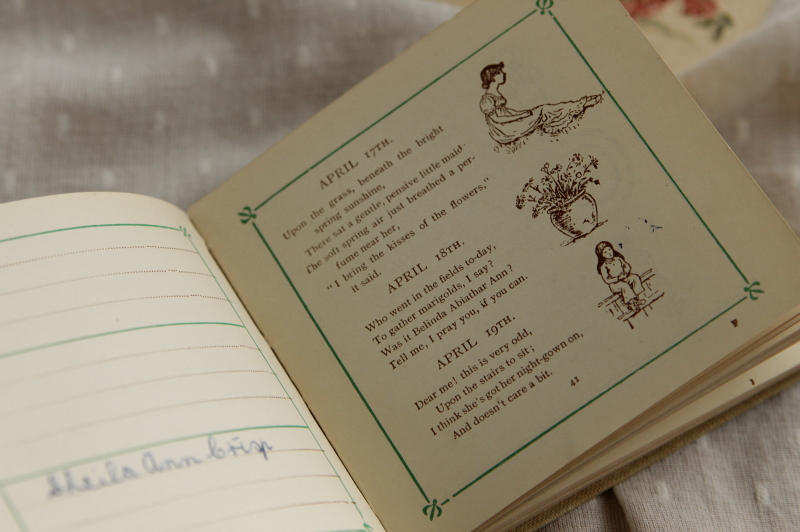 Sheila Ann Crisp
APRIL 17TH.
Upon the grass, beneath the bright
spring sunshine,
There sat a gentle, pensive little maid.
The soft spring air just breathed a per-
fume near her,
"I bring the kisses of the flowers,"
it said.
APRIL 18TH.
Who went in the fields to-day,
To gather marigolds, I say?
Was it Belinda Abiathar Ann?
Tell me, I pray you, if you can.
APRIL 19TH.
Dear me! this is very odd,
Upon the stairs to sit;
I think she's got her night-gown on,
And doesn't care a bit.
41
F